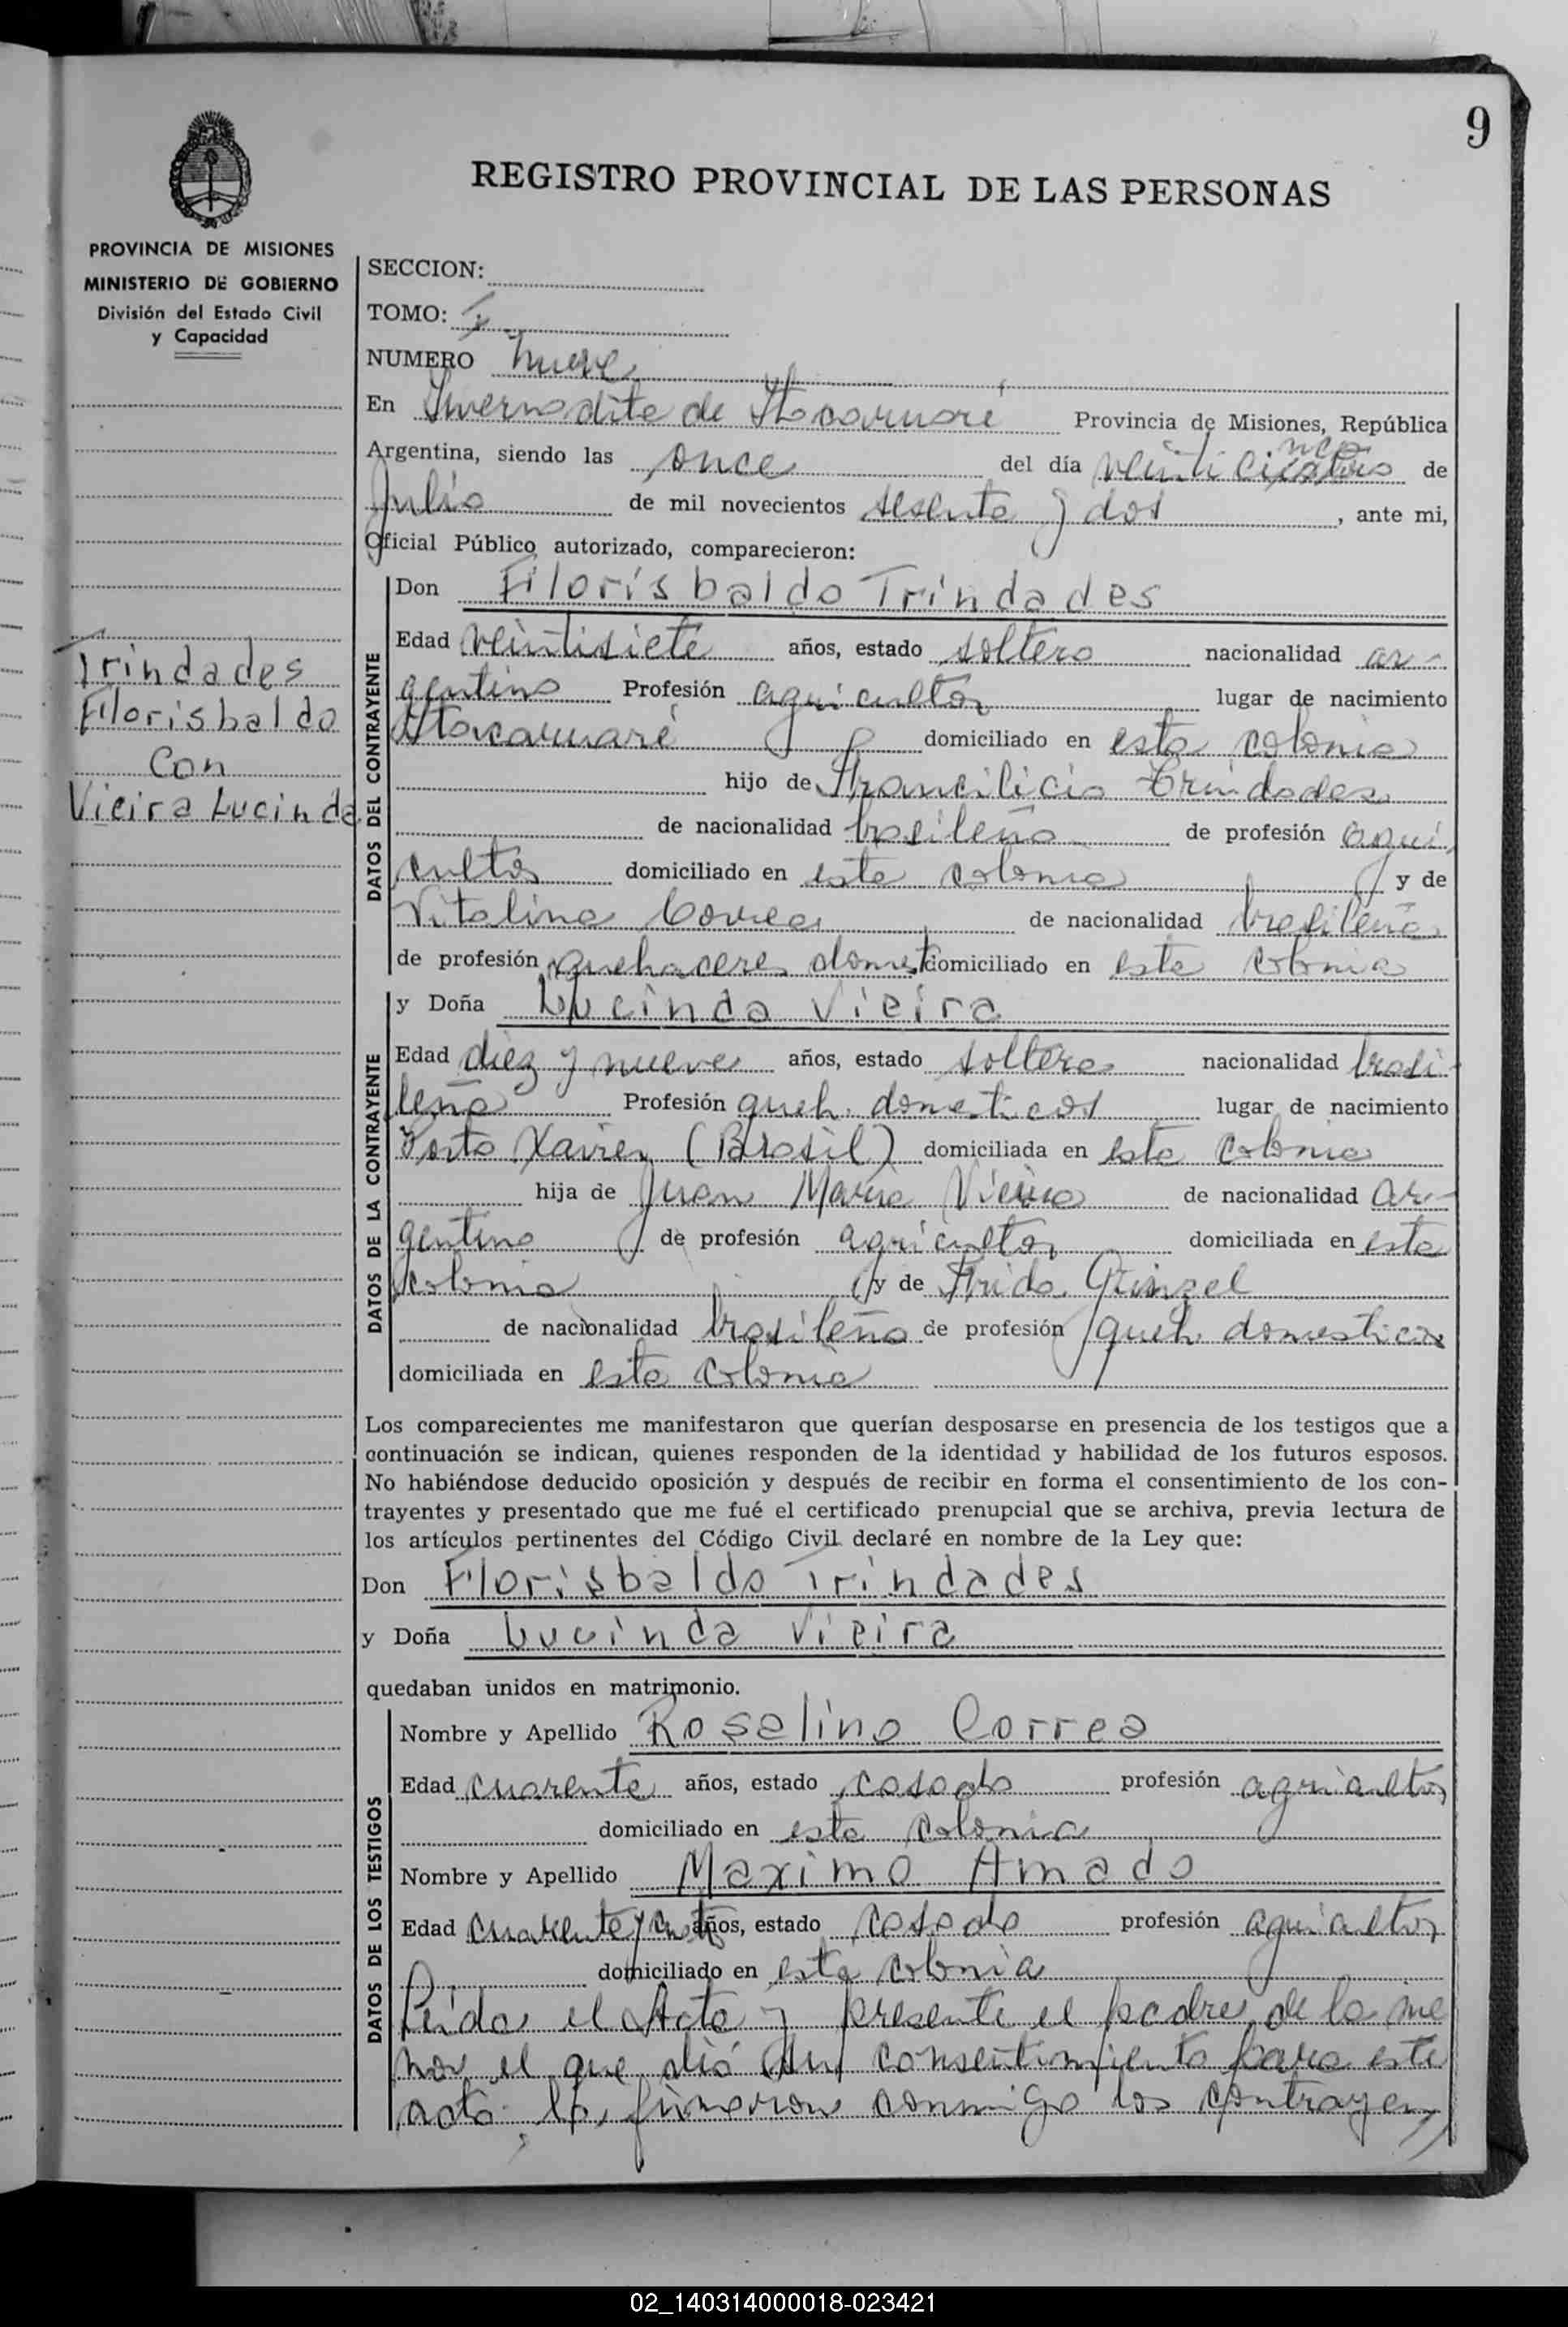 9
REGISTRO PROVINCIAL DE LAS PERSONAS
PROVINCIA DE MISIONES
MINISTERIO DE GOBIERNO
División del Estado Civil
y Capacidad
Trindades
Florisbaldo
Con
Vieira Lucinda
SECCION:
TOMO: I
NUMERO nueve
En Invernadita de Itacaruaré Provincia de Misiones, República
Argentina, siendo las once del día veinticinco de
Julio de mil novecientos sesenta y dos, ante mi,
Oficial Público autorizado, comparecieron:
DATOS DEL CONTRAYENTE
Don Florisbaldo Trindades
Edad veintisiete años, estado soltero nacionalidad ar-
gentino Profesión agricultor lugar de nacimiento
Itacaruaré domiciliado en esta colonia
hijo de Trindades
de nacionalidad brasileña de profesión agri
cultor domiciliado en esta colonia y de
Vitalina Correa de nacionalidad brasileña
de profesión quehaceres domest domiciliado en esta colonia
DATOS DE LA CONTRAYENTE
y Doña Lucinda Vieira
Edad diez y nueve años, estado soltera nacionalidad brasi-
leña Profesión queh. domesticos lugar de nacimiento
Porto Xavier (Brasil) domiciliada en esta colonia
hija de Juan Maria Vieira de nacionalidad ar-
gentino de profesión agricultor domiciliada en esta
colonia y de Frida
de nacionalidad brasileña de profesión queh domesticos
domiciliada en esta colonia
Los comparecientes me manifestaron que querían desposarse en presencia de los testigos que a
continuación se indican, quienes responden de la identidad y habilidad de los futuros esposos.
No habiéndose deducido oposición y después de recibir en forma el consentimiento de los con-
trayentes y presentado que me fué el certificado prenupcial que se archiva, previa lectura de
los artículos pertinentes del Código Civil declaré en nombre de la Ley que:
Don Florisbaldo Trindades
y Doña Lucinda Vieira
quedaban unidos en matrimonio.
DATOS DE LOS TESTIGOS
Nombre y Apellido Roselino Correa
Edad cuarenta años, estado casado profesión agricultor
domiciliado en esta colonia
Nombre y Apellido Maximo Amado
Edad cuarenta y años, estado casado profesión agricultor
domiciliado en esta colonia
Leida el Acta y presente el padre de la me
nor el que dió su consentimiento para este
acto la firmaron conmigo los contrayen
02_140314000018-023421